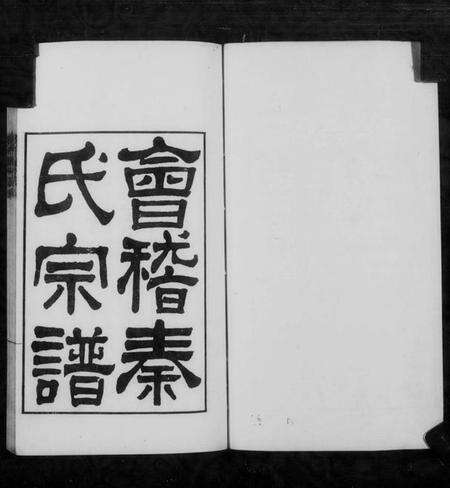 會稽秦
氏宗譜